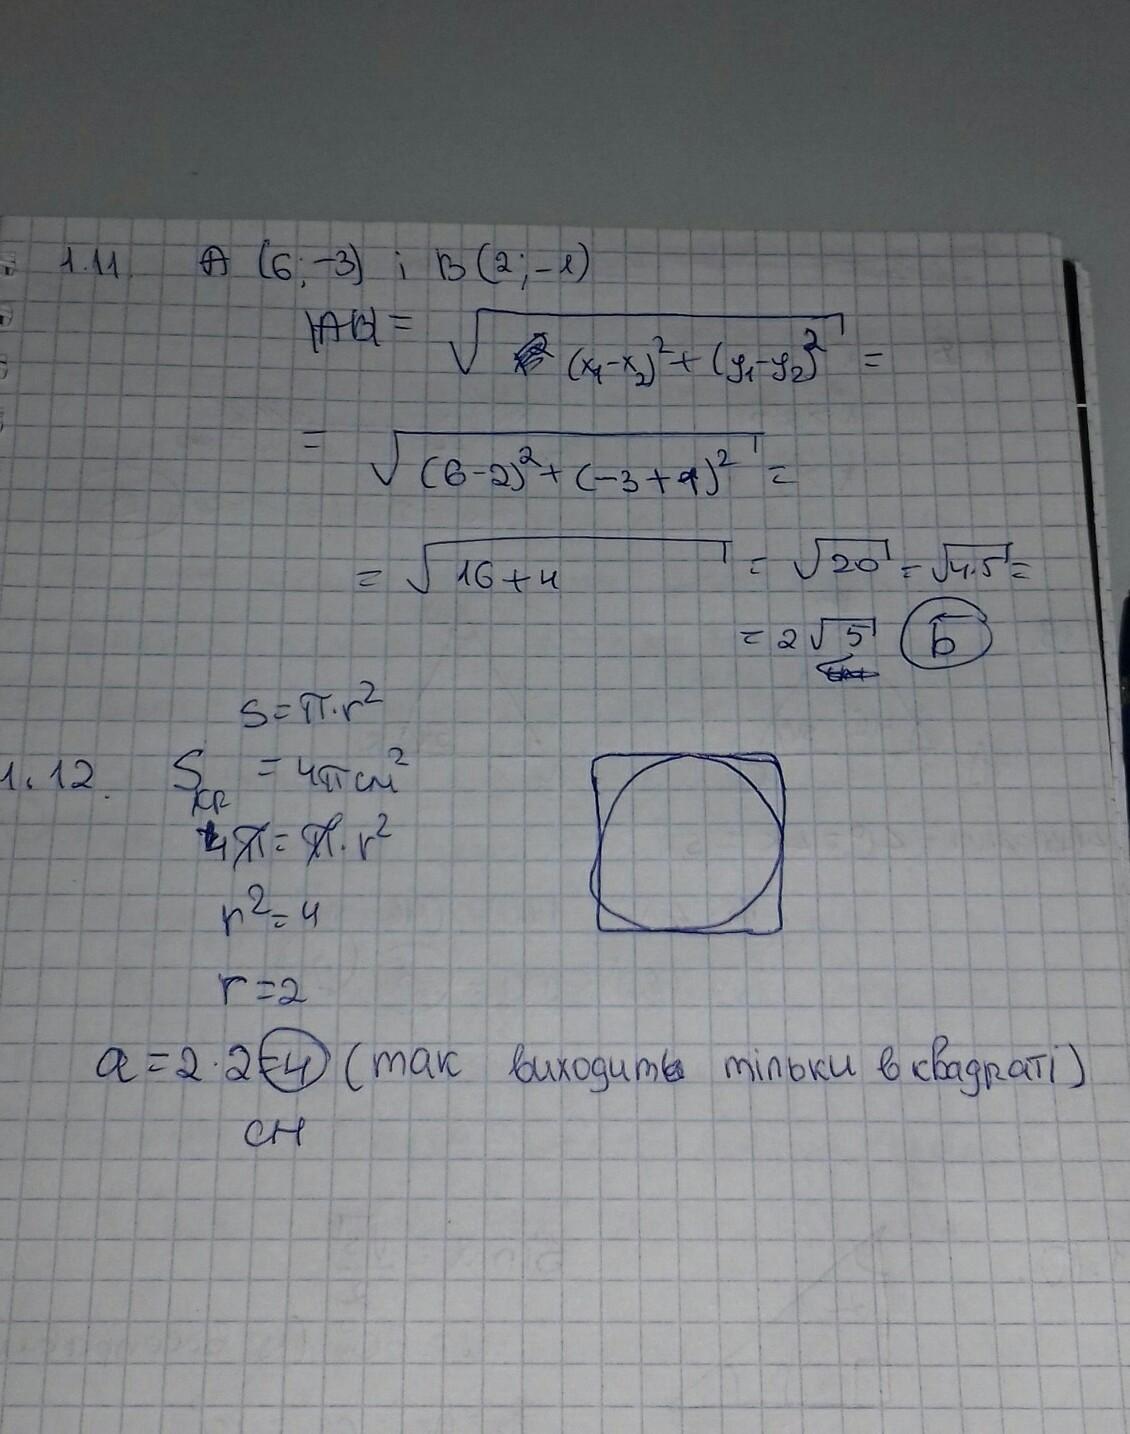 1.11. A (6; -3) і B (2; -1)
|AB| = √((x₁-x₂)² + (y₁-y₂)²) =
= √((6-2)² + (-3+1)²) =
= √(16+4) = √20 = √(4·5) =
= 2√5 Б
S = π·r²
1.12. Sкр = 4π см²
4π = π·r²
r² = 4
r = 2
a = 2·2 = 4 (так виходить тільки в квадраті)
см